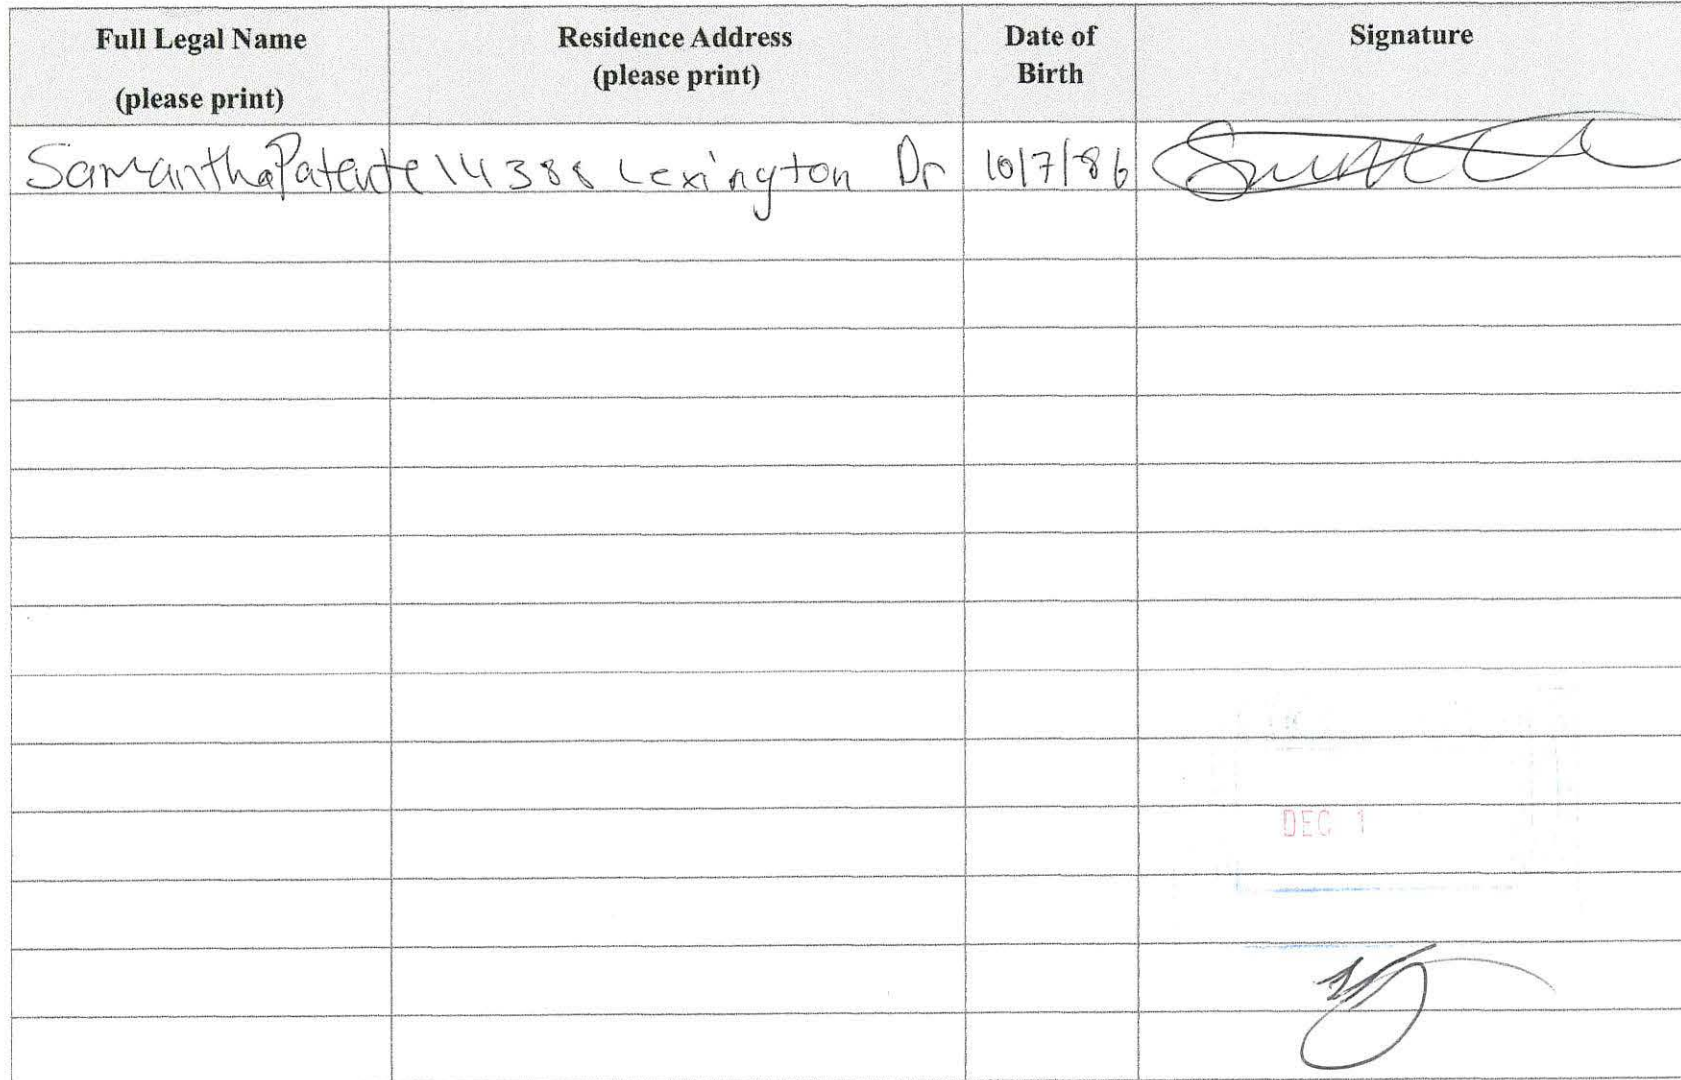 Full Legal Name
(please print)
Residence Address
(please print)
Date of
Birth
Signature
Samantha Patente 14388 Lexington Dr 10/7/86
DEC 1